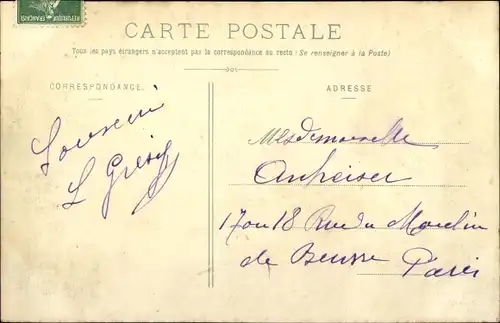 CARTE POSTALE
Tous les pays étrangers n'acceptent pas la correspondance au recto (Se renseigner à la Poste)
CORRESPONDANCE.
ADRESSE
Souvenir
L
Mesdemoiselle
Anheiser
17 ou 18 Rue du Moulin
de Beurre
Paris